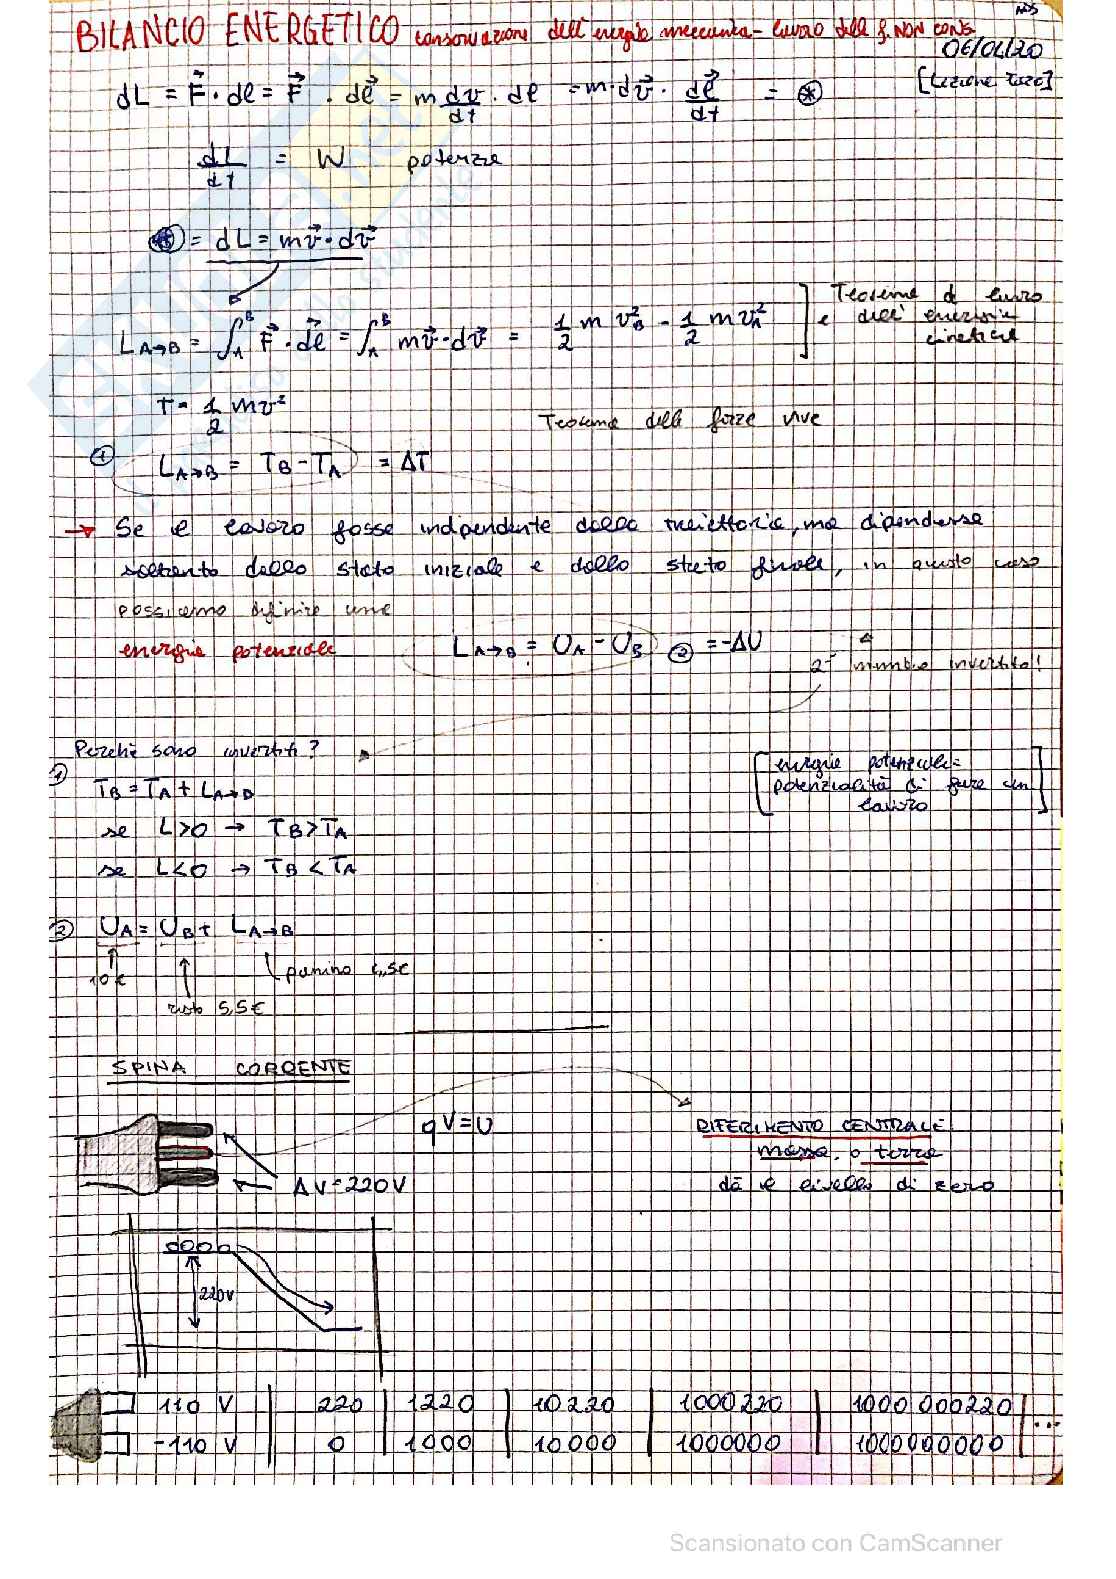 N°5
BILANCIO ENERGETICO conservazione dell'energia meccanica - lavoro delle f. NON CONS.
06/04/20
[Lezione
dL = F⃗ · dl = F⃗ · dl⃗ = m dv/dt · dl = m · dv⃗ · dl⃗/dt = ⊛
dL/dt = W potenza
⊛ = dL = mv⃗ · dv⃗
L A→B = ∫_A^B F⃗ · dl⃗ = ∫_A^B mv⃗ · dv⃗ = 1/2 m v_B² - 1/2 m v_A²
Teorema di lavoro
e dell'energia
cinetica
T = 1/2 mv²
Teorema delle forze vive
① L A→B = T_B - T_A = ΔT
→ Se il lavoro fosse indipendente dalla traiettoria, ma dipendesse
soltanto dallo stato iniziale e dallo stato finale, in questo caso
possiamo definire una
energia potenziale L A→B = U_A - U_B ② = -ΔU
2° membro invertito!
Perché sono invertiti?
[energia potenziale =
potenzialità di fare un
lavoro]
① T_B = T_A + L A→B
se L>0 → T_B > T_A
se L<0 → T_B < T_A
② U_A = U_B + L A→B
10€
panino 4,5€
resto 5,5€
SPINA CORRENTE
qV = U
RIFERIMENTO CENTRALE
massa o terra
dà il livello di zero
ΔV = 220V
220V
110 V | 220 | 1220 | 10220 | 1000220 | 1000 000220 | ...
-110 V | 0 | 1000 | 10000 | 1000000 | 1000000000 |
Scansionato con CamScanner